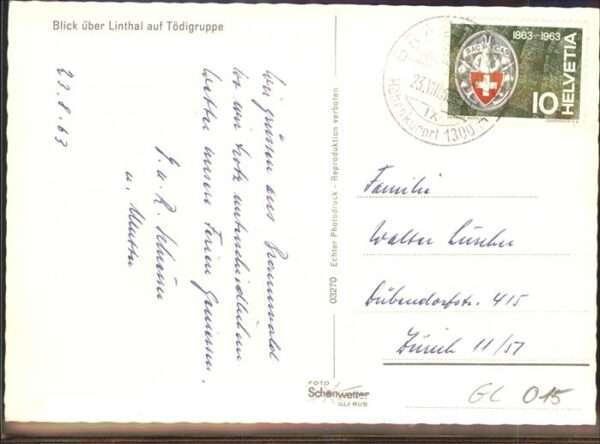 Blick über Linthal auf Tödigruppe
23.8.63
Wir grüssen aus Braunwald
wo wir trotz unterschiedlichem
Wetter unsere Ferien geniessen.
J. u. R.
u. Mutter
03270 Echter Photodruck - Reproduktion verboten
FOTO
Schönwetter
GLARUS
Höhenkurort 1300
1863-1963
HELVETIA
10
Familie
Walter Lüscher
Dübendorfstr. 415
Zürich 11/51
GL 015